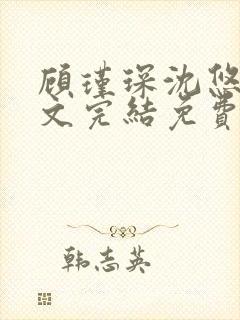 顾瑾琛沈悠
文完结免费
韩志英